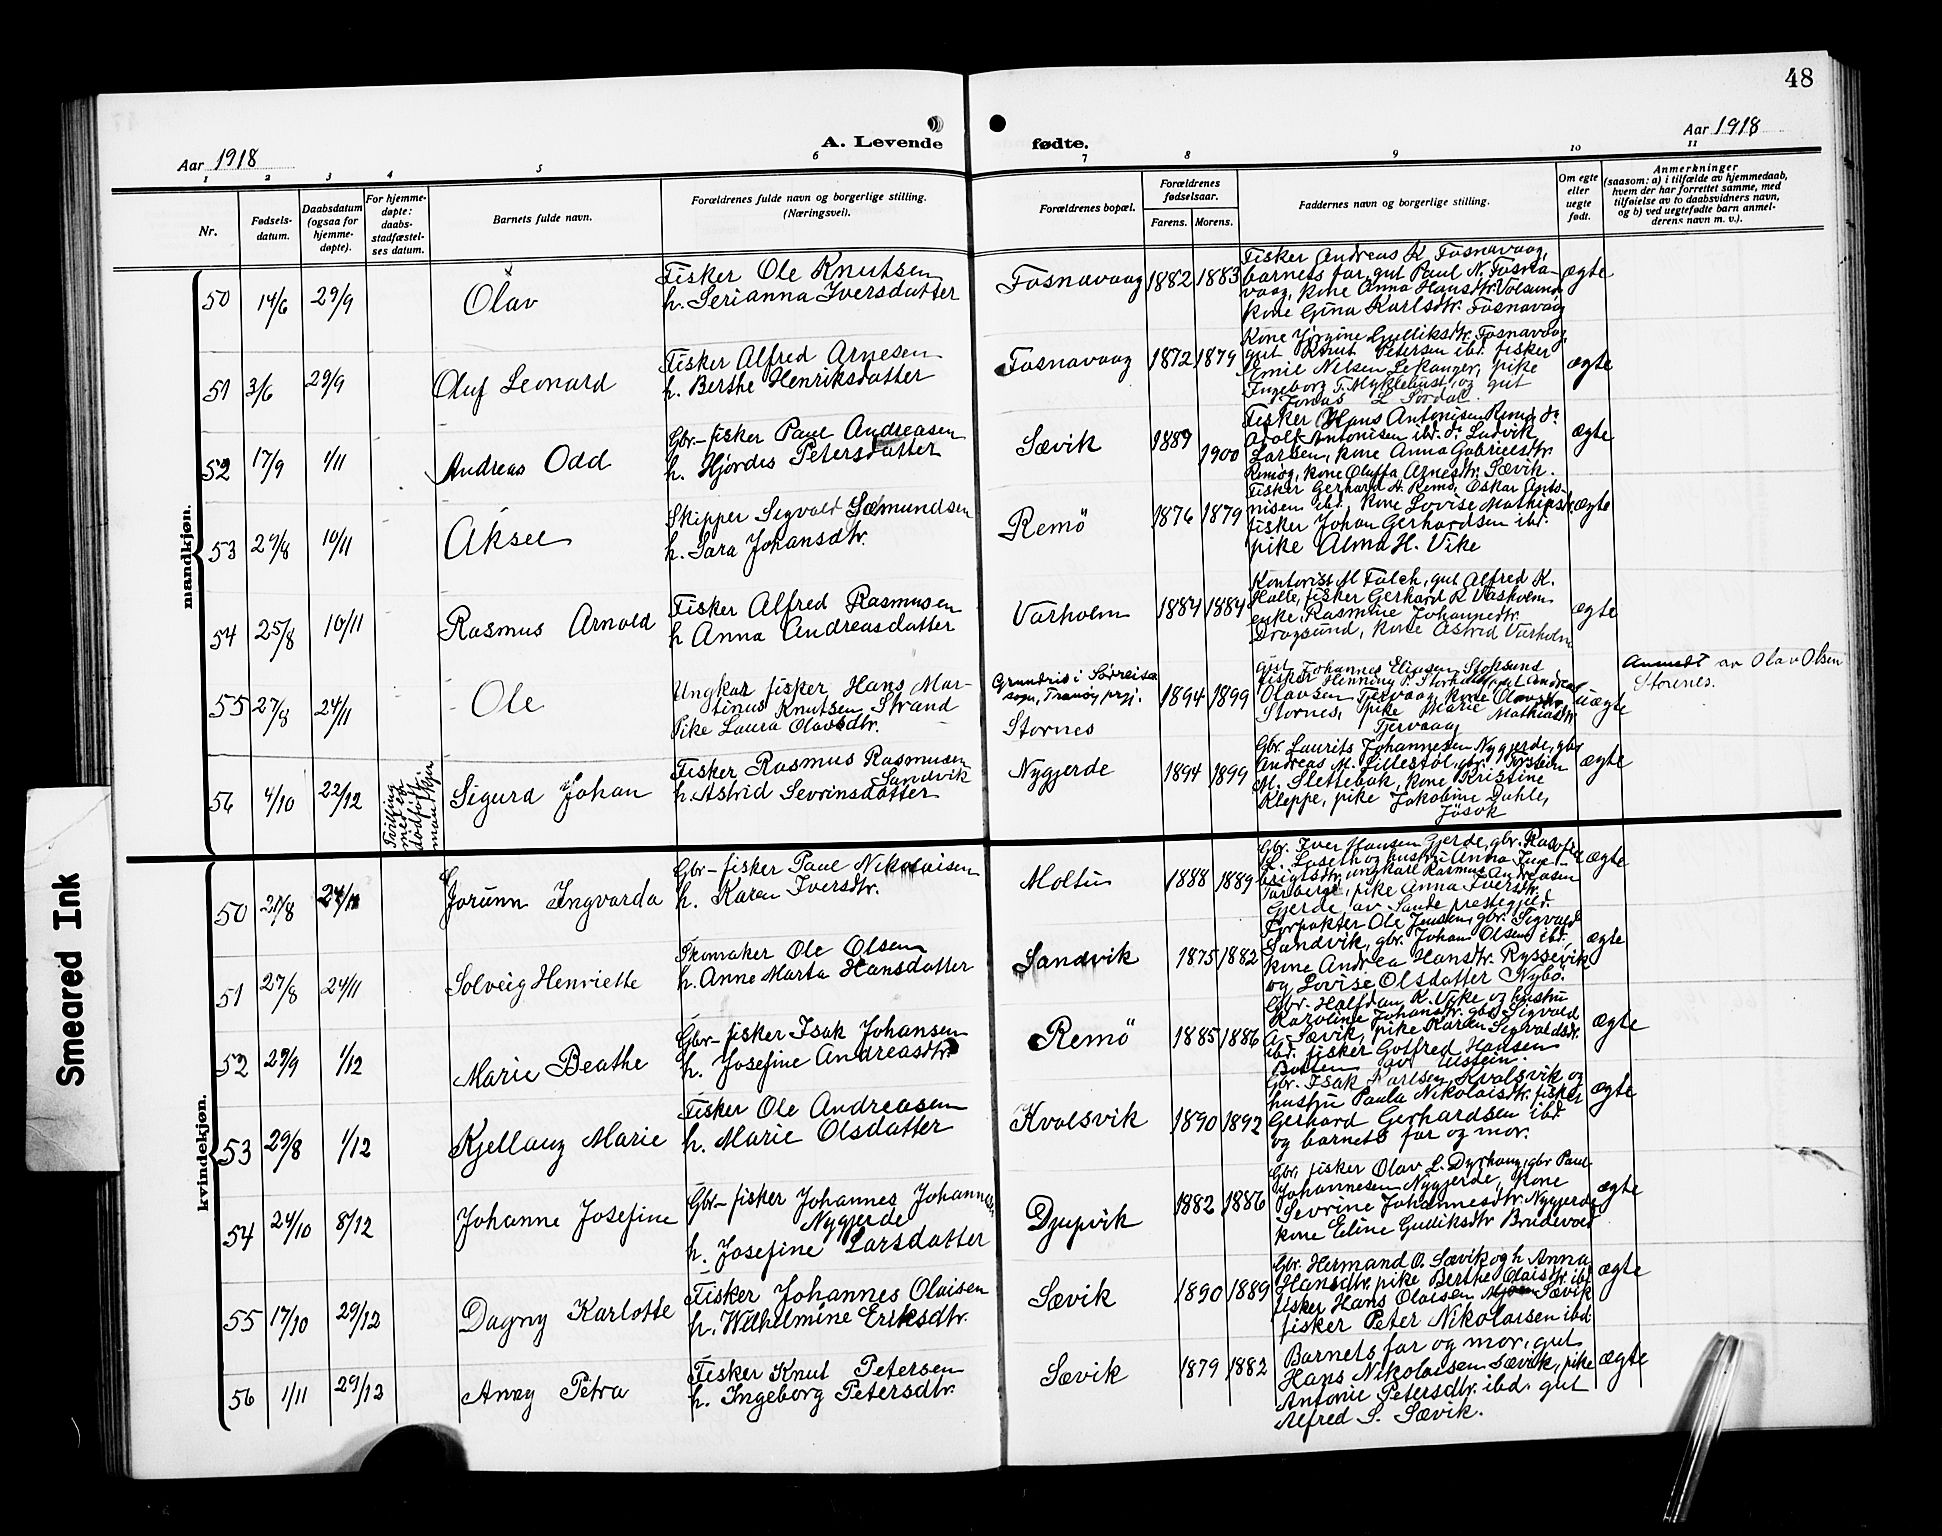 48
Aar 1918
A. Levende
fødte.
Aar 1918
1 2 3 4 5 6 7 8 9 10 11
Nr.
Fødsels-
datum.
Daabsdatum
(ogsaa for
hjemme-
døpte).
For hjemme-
døpte:
daabs-
stadfæstel-
ses datum.
Barnets fulde navn.
Forældrenes fulde navn og borgerlige stilling.
(Næringsvei).
Forældrenes bopæl.
Forældrenes
fødselsaar.
Farens. Morens.
Faddernes navn og borgerlige stilling.
Om egte
eller
uegte
født.
Anmerkninger
(saasom: a) i tilfælde av hjemmedaab,
hvem der har forrettet samme, med
tilføielse av to daabsvidners navn,
og b) ved uegtefødte barn anmel-
derens navn m. v.).
mandkjøn.
50 14/6 29/9 Olav
Fisker Ole Knutsen
h. Serianna Iversdatter
Fosnavaag 1882 1883
Fisker Andreas K Fosnavaag,
barnets far, gut Paul N. Fosna-
vaag, kone Anna Hansdtr. Volsund
kone Gina Karlsdtr. Fosnavaag
ægte
51 3/6 29/9 Oluf Leonard
Fisker Alfred Arnesen
h. Berthe Henriksdatter
Fosnavaag 1872 1879
Kone Jørgine Gulliksdtr. Fosnavaag,
gut Knut Petersen ibd. fisker
Emil Nilsen Lekanger, pike
Ingeborg T. Myklebust, og gut
Jonas L Sørdal.
ægte
52 17/9 1/11 Andreas Odd
Gbr- fisker Paul Andreasen
h. Hjørdis Petersdatter
Sævik 1889 1900
Fisker Hans Antonisen Remø, do
Adolf Antonisen ibd. do Ludvik
Larsen, kone Anna Gabrielsdtr.
Remøy, kone Oluffa Arnesdtr. Sævik.
ægte
53 29/8 10/11 Aksel
Skipper Sigvald Sæmundsen
h. Sara Johansdtr.
Remö 1876 1879
Fisker Gerhard H. Remö, Oskar Anto-
nisen ibd. kone Lovise Mathiasdtr.
fisker Johan Gerhardsen ibd.
pike Alma H. Vike
ægte
54 25/8 10/11 Rasmus Arnold
Fisker Alfred Rasmusen
h Anna Andreasdatter
Varholm 1884 1884
Kontorist M Falch, gut Alfred K.
Halle, fisker Gerhard K Vaskholm
enke, Rasmine Johannedtr.
Dragsund, kone Astrid Varholm
ægte
55 27/8 24/11 Ole
Ungkar fisker Hans Mar-
tinus Knutsen Strand
Pike Laura Olavsdtr.
Grundris i Sørreisa
sogn, Tranøy prgj.
Stornes
1894 1899
gut Johannes Eliasen Stoksund
fisker Henning P. Storhus, gut Andreas
Olavsen Tjervaag, kone Olavsdtr
Stornes, pike Marie Mathiasdtr
Tjervaag
uægte
Anmeldt av Olav Olsen
Stornes.
56 4/10 22/12
Tvilling
med en
dødfødt
mandkjøn
Sigurd Johan
Fisker Rasmus Rasmusen
Sandvik
h. Astrid Sevrinsdatter
Nygjerde 1894 1899
Gbr. Laurits Johannesen Nygjerde, gbr
Andreas M. Lillestøl, gbr. Torstein
M. Slettebak, kone Kristine
Kleppe, pike Jakobine Duhle,
Jösok
ægte
kvindekjøn.
50 27/8 24/11 Jorunn Ingvarda
Gbr- fisker Paul Nikolaisen
h. Karen Iversdtr.
Moltu 1888 1889
Gbr. Iver Hansen Gjerde, gbr. Rasmus
L. Laseth og hustru Anna Inge-
brigtsdtr, ungkarl Rasmus Andreasen
Tarberg, pike Anna Iversdtr.
Gjerde, av Sande prestegjeld.
ægte
51 27/8 24/11 Solveig Henriette
Skomaker Ole Olsen
h. Anne Marta Hansdatter
Sandvik 1875 1882
Forpakter Ole Jensen, gbr. Sigvald
Sandvik, gbr. Johan Olsen ibd,
kone Andrea Hansdtr. Ryssevik
og Lovise Olsdatter Nybö.
ægte
52 29/9 1/12 Marie Beathe
Gbr- fisker Isak Johansen
h. Josefine Andreasdtr.
Remö 1885 1886
Gbr. Halfdan K. Vike og hustru
Karoline Johansdtr. gbr Sigvald
A. Sævik, pike Karen Sigvaldsdtr.
ibd. fisker Gotfred Hansen
Botten av Ulstein.
ægte
53 29/8 1/12 Kjellaug Marie
Fisker Ole Andreasen
h. Marie Olsdatter
Kvalsvik 1890 1892
Gbr. Isak Karlsen Kvalsvik og
hustru Paula Nikolaisdtr. fisker
Gerhard Gerhardsen ibd.
og barnets far og mor.
ægte
54 24/10 8/12 Johanne Josefine
Gbr- fisker Johannes Johannes.
Nygjerde
h. Josefine Larsdatter
Djupvik 1882 1886
Gbr. fisker Olav L. Dyrhaug, gbr Paul
Johannesen Nygjerde, kone
Sevrine Johannesdtr. Nygjerde
kone Eline Gulliksdtr Brudevold
ægte
55 17/10 29/12 Dagny Karlotte
Fisker Johannes Olaisen
h. Wilhelmine Eriksdtr.
Sævik 1890 1889
Gbr. Hermand O. Sævik og h Anna
Hansdtr. pike Berthe Olaisdtr ibd
fisker Hans Olaisen Sævik
fisker Peter Nikolaisen ibd
ægte
56 1/11 29/12 Anny Petra
Fisker Knut Petersen
h. Ingeborg Petersdtr.
Sævik 1879 1882
Barnets far og mor, gut
Hans Nikolaisen Sævik, pike
Antonie Petersdtr. ibd. gut
Alfred S. Sævik.
ægte
Smeared Ink